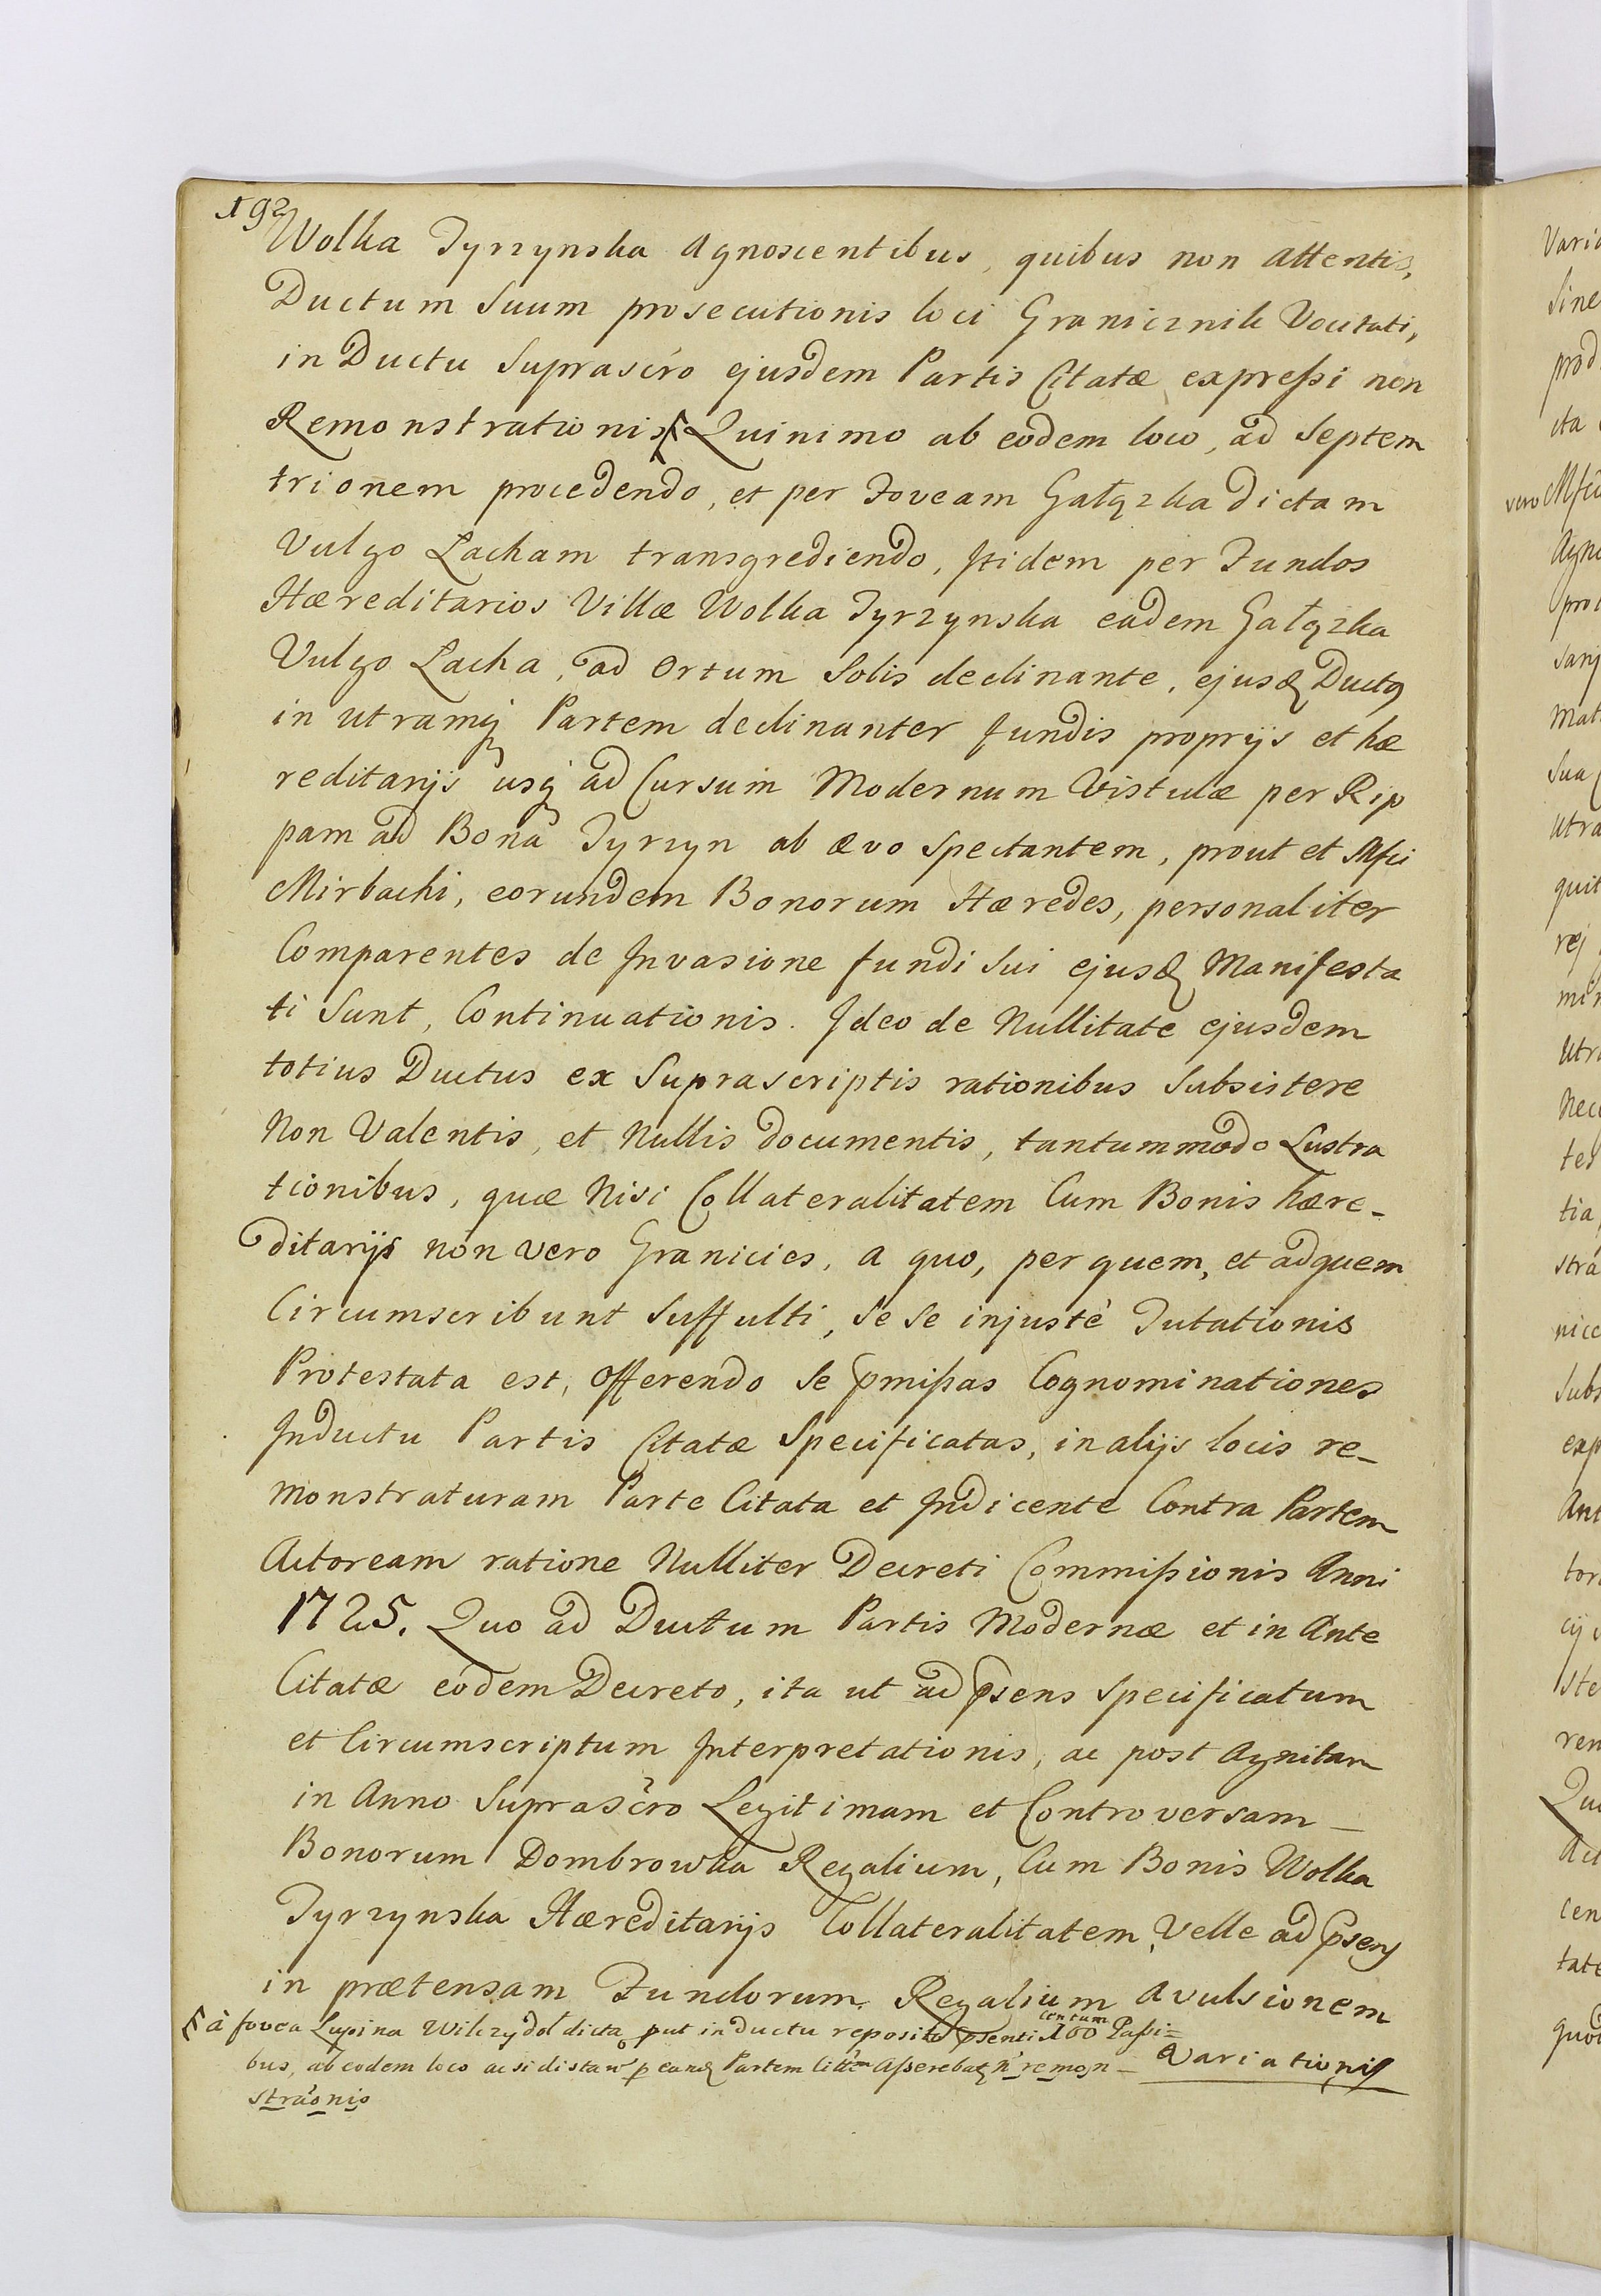 192
Wolka Tyrzynska Agnoscentibus, quibus non attentis,
Ductum Suum prosecutionis loci Granicznik Vocitati,
in Ductu Suprascro ejusdem Partis Citatæ expressi non
Remonstrationis Quinimo ab eodem loco, ad Septem
trionem procedendo, et per Foveam Gałązka dictam
Vulgo Lacham transgrediendo, Itidem per Fundos
Hæreditarios Villæ Wolka Tyrzynska eadem Gałązka
Vulgo Lacha, ad Ortum Solis declinante, ejusq Ductq
in utramq Partem declinanter fundis proprijs et hæ
reditarijs usq ad Cursum Modernum Vistulæ per Rip
pam ad Bona Tyrzyn ab ævo Spectantem, prout et Mfci
Mirbachi, eorundem Bonorum Hæredes, personaliter
Comparentes de Invasione fundi Sui ejusq Manifesta
ti Sunt, Continuationis. Ideo de Nullitate ejusdem
totius Ductus ex Suprascriptis rationibus Subsistere
Non Valentis, et Nullis documentis, tantummodo Lustra
tionibus, quæ Nisi Collateralitatem Cum Bonis hære-
ditarijs non vero Granicies, a quo, per quem, et adquem
Circumscribunt Suffulti, Se Se injustè Tutationis
Protestata est, Offerendo Se pmissas Cognominationes
Inductu Partis Citatæ Specificatas, in alijs locis re-
monstraturam Parte Citata et Indicente Contra Partem
Actoream ratione Nulliter Decreti Commissionis Anni
1725. Quo ad Ductum Partis Modernæ et in Ante
Citatæ eodem Decreto, ita ut ad psens Specificatum
et Circumscriptum Interpretationis, ac post Agnitam
in Anno Suprascro Legitimam et Controversam
Bonorum Dombrowka Regalium, Cum Bonis Wolka
Tyrzynska Hæreditarijs Collateralitatem, Velle ad psens
in prætensam Fundorum Regalium Avulsionem
à fovea Lupina Wilczy dol dicta put in ductu reposito psenti centum 100 Passi=
bus, ab eodem loco ac si distan p eandq Partem Asserebatq remon-
strãonis
Variationis